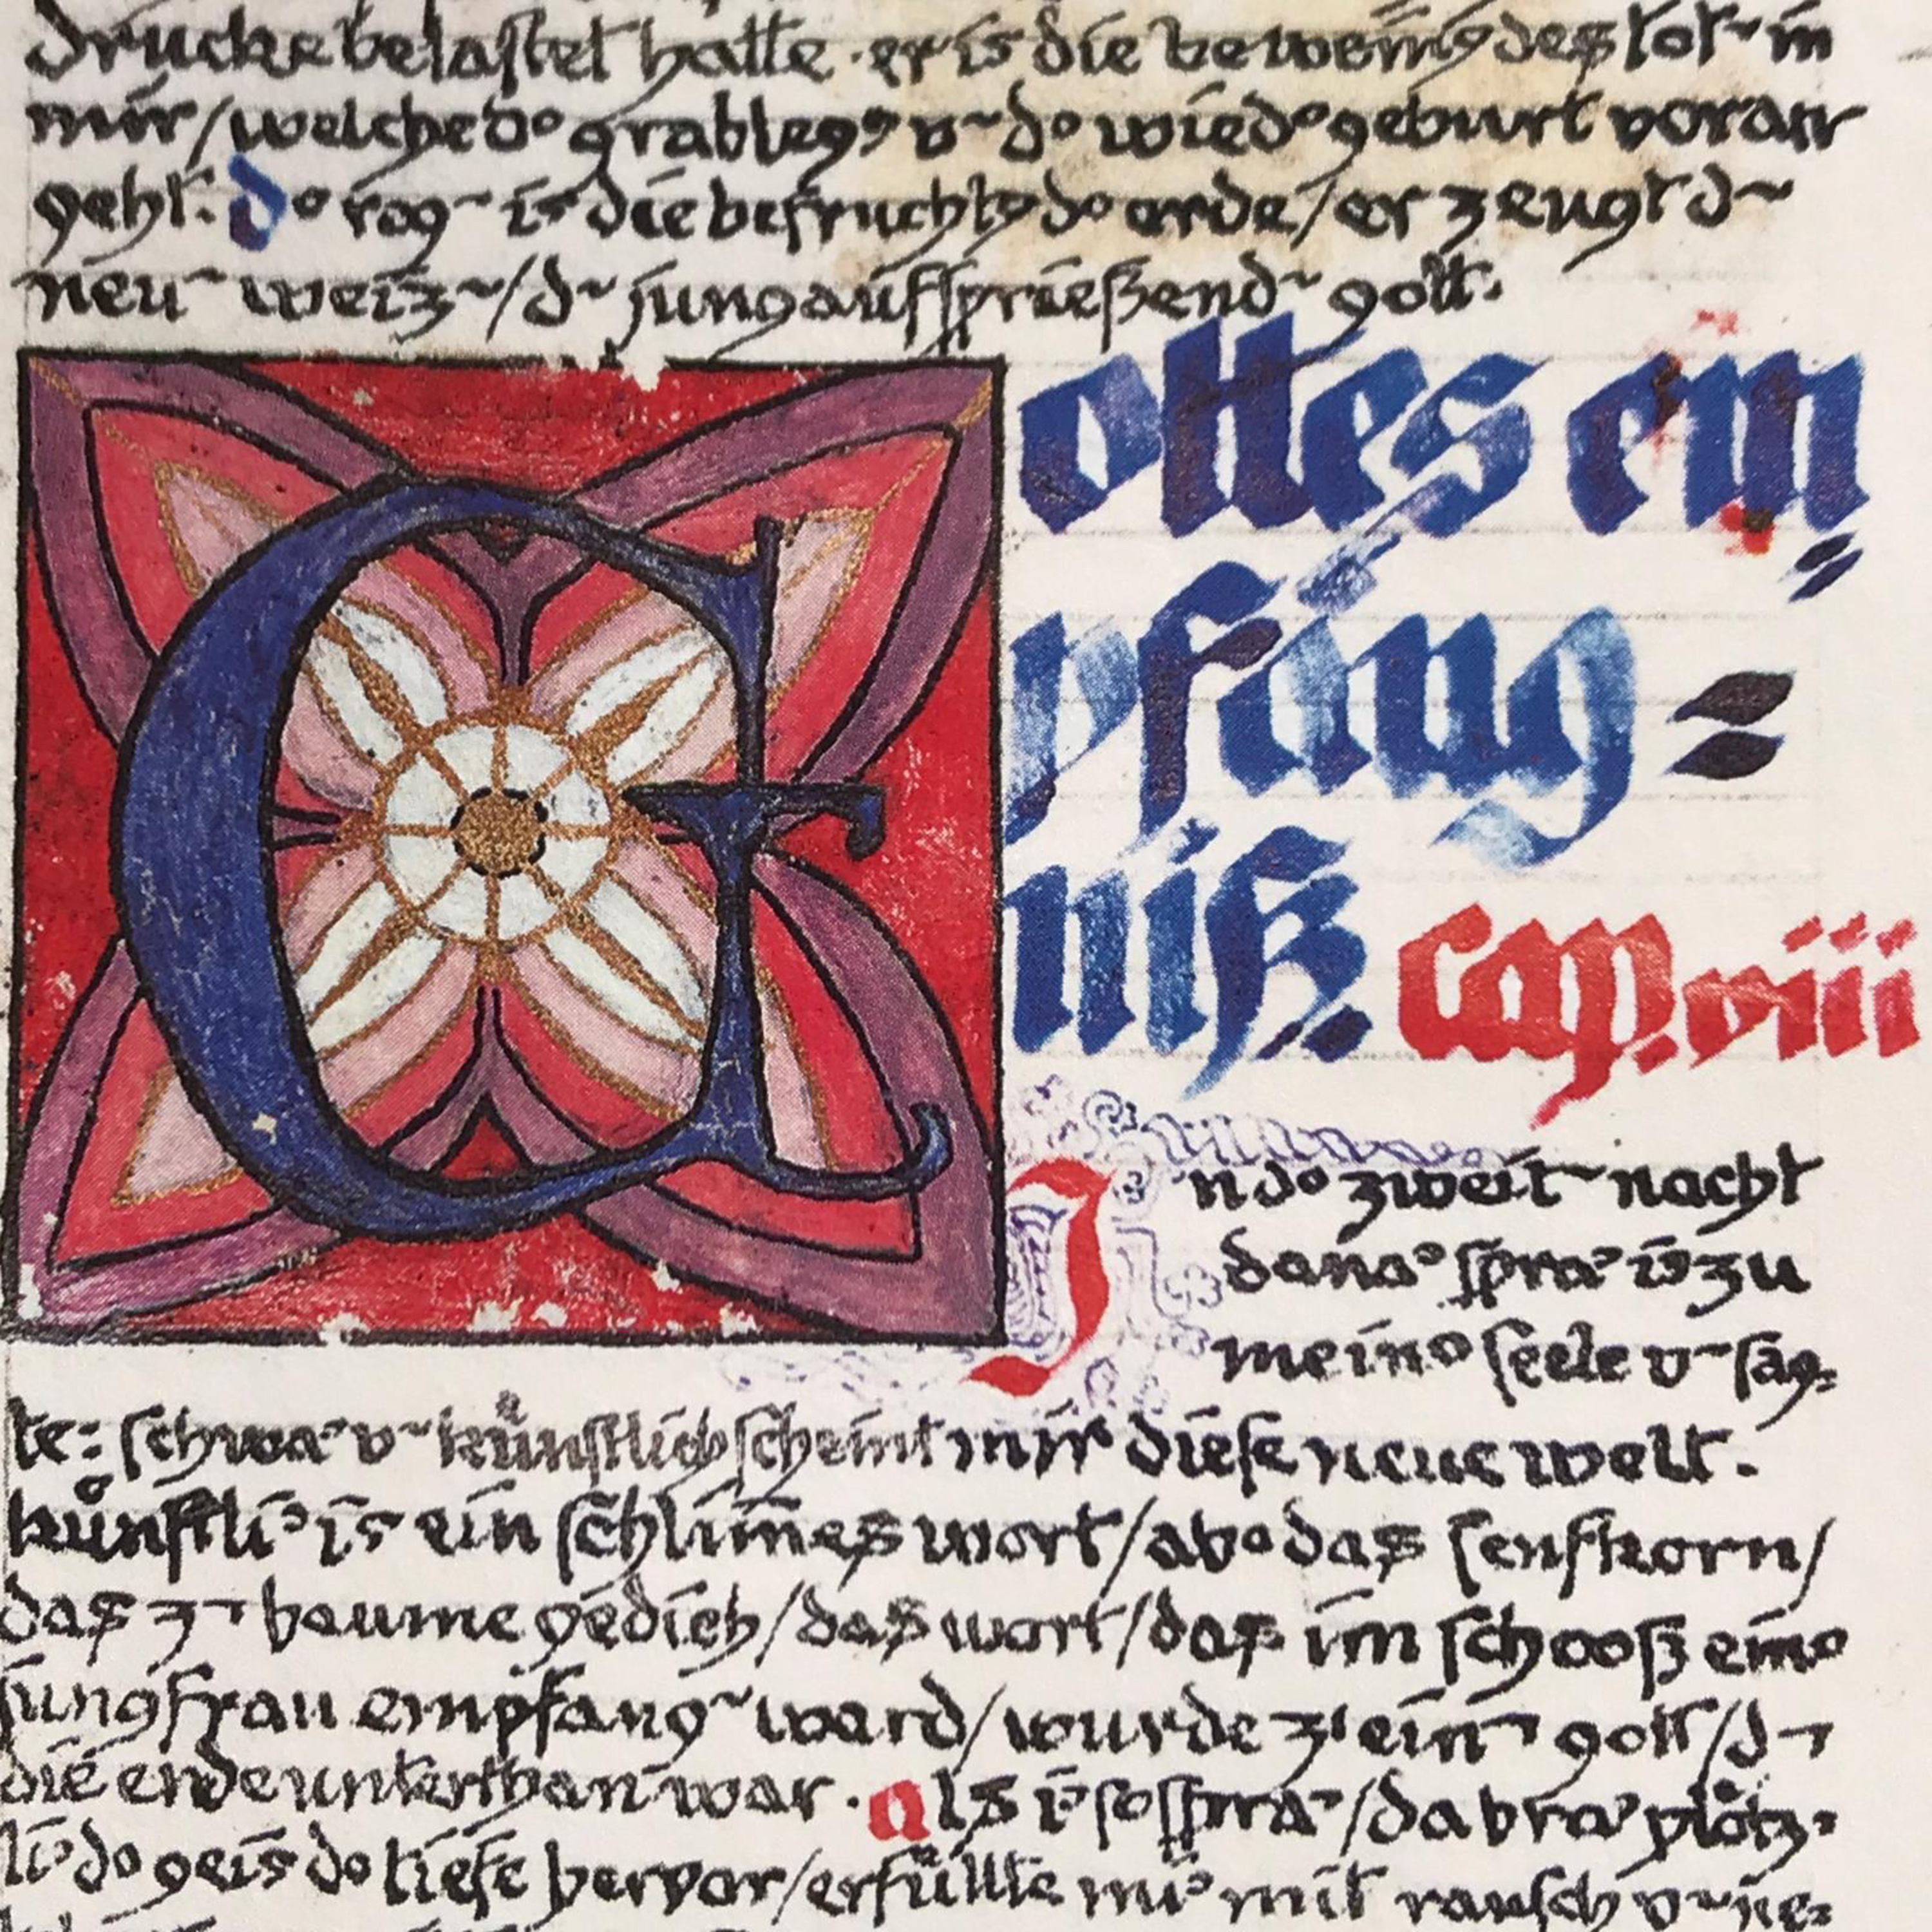 drucke belastet hatte. er is die beweinūg des tot~ in
mir/welche do grablegg v~ do wiedo geburt voran
geht. do reg~ is die befruchtg do erde/er zeugt d~
neu~ weiz~/d~ jung aufsprießend~ gott.
Gottes em
pfäng=
niß. cap. viii
In do zweit~ nacht
dana' spra' i' zu
meino seele v~ sag=
te: schwa' v~ künstlich scheint mir diese neue welt.
künstli' is ein schlim̄es wort/abo das senfkorn/
das z~ baume gedieh/das wort/das im schooß eino
jungfrau empfang~ ward/wurde z' ein~ gott/d~
die erde unterthan war. als i' so spra'/da bra' plötz=
li' do geis do tiefe hervor/erfüllte mi' mit rausch v~ ne=